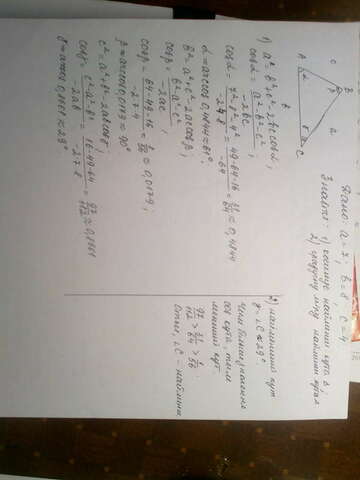 Дано: a = 7; b = 8, c = 4
Знайти: 1) косинус найменшого кута Δ;
2) градусну міру найменшого кута
A
B
C
c
a
b
α
β
γ
1) a² = b² + c² - 2bc cosα;
cosα = a² - b² - c² / -2bc ;
cosα = 7² - 8² - 4² / -2·4·8 = 49 - 64 - 16 / -64 = 31/64 ≈ 0,4844
α = arccos 0,4844 ≈ 61°.
b² = a² + c² - 2ac cosβ;
cosβ = b² - a² - c² / -2ac ;
cosβ = 64 - 49 - 16 / -2·7·4 = 1/56 ≈ 0,0179;
β = arccos 0,0179 ≈ 90°.
c² = a² + b² - 2ab cosγ;
cosγ = c² - a² - b² / -2ab = 16 - 49 - 64 / -2·7·8 = 97/112 ≈ 0,8661
γ = arccos 0,8661 ≈ 29°
2) найменший кут
γ = ∠C ≈ 29°
Чим більше значення
cos кута, тим
менший кут.
97/112 > 31/64 > 1/56.
Отже, ∠C - найменш